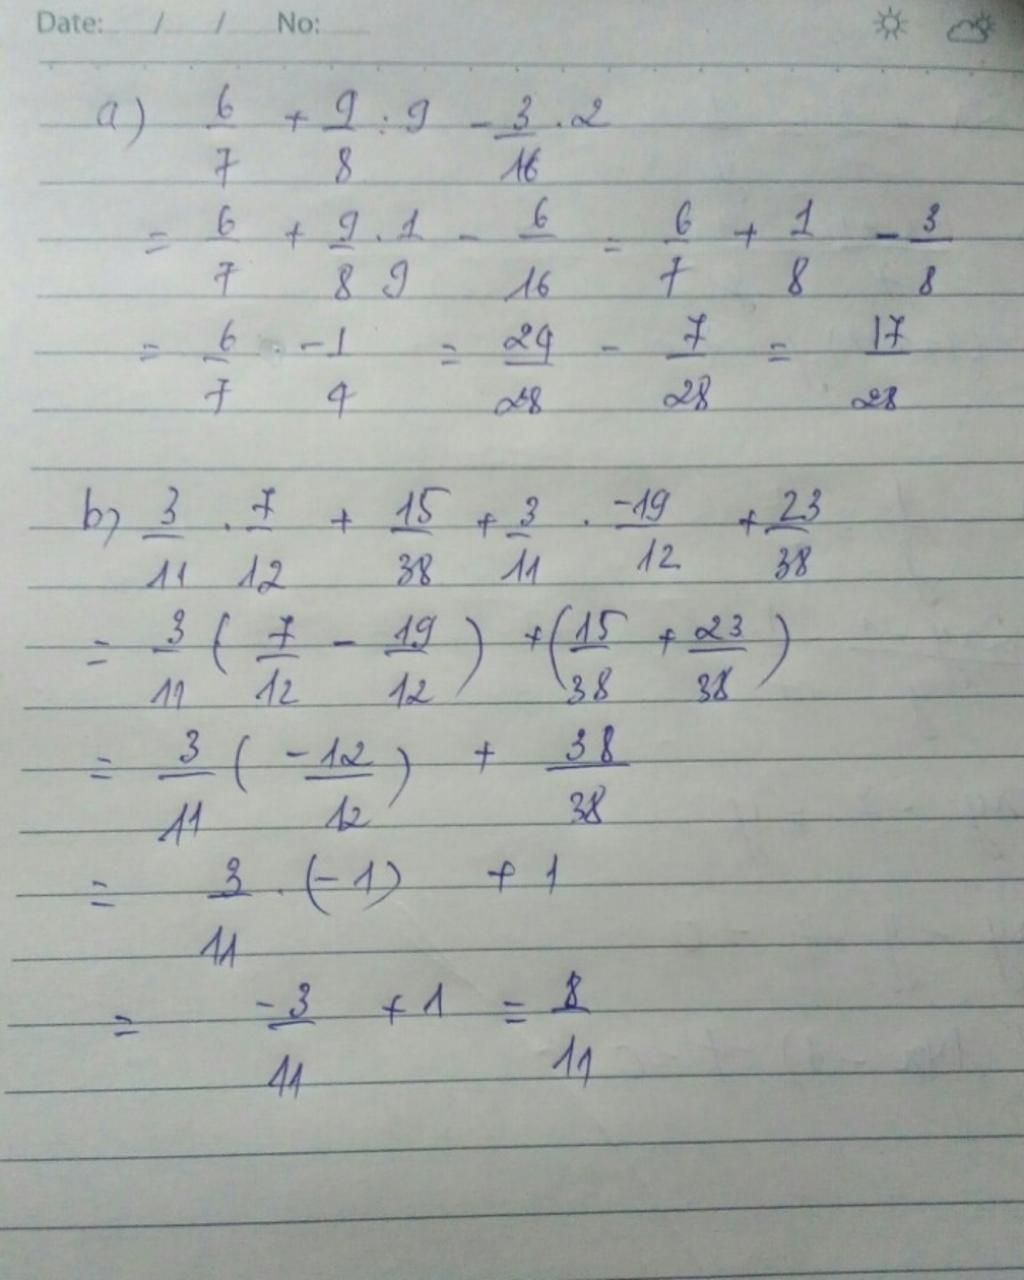 Date: / / No:
a) 6/7 + 9/8 : 9 - 3/16 . 2
= 6/7 + 9/8 . 1/9 - 6/16 = 6/7 + 1/8 - 3/8
= 6/7 - 1/4 = 24/28 - 7/28 = 17/28
b) 3/11 . 7/12 + 15/38 + 3/11 . -19/12 + 23/38
= 3/11 ( 7/12 - 19/12 ) + ( 15/38 + 23/38 )
= 3/11 ( -12/12 ) + 38/38
= 3/11 . (-1) + 1
= -3/11 + 1 = 8/11